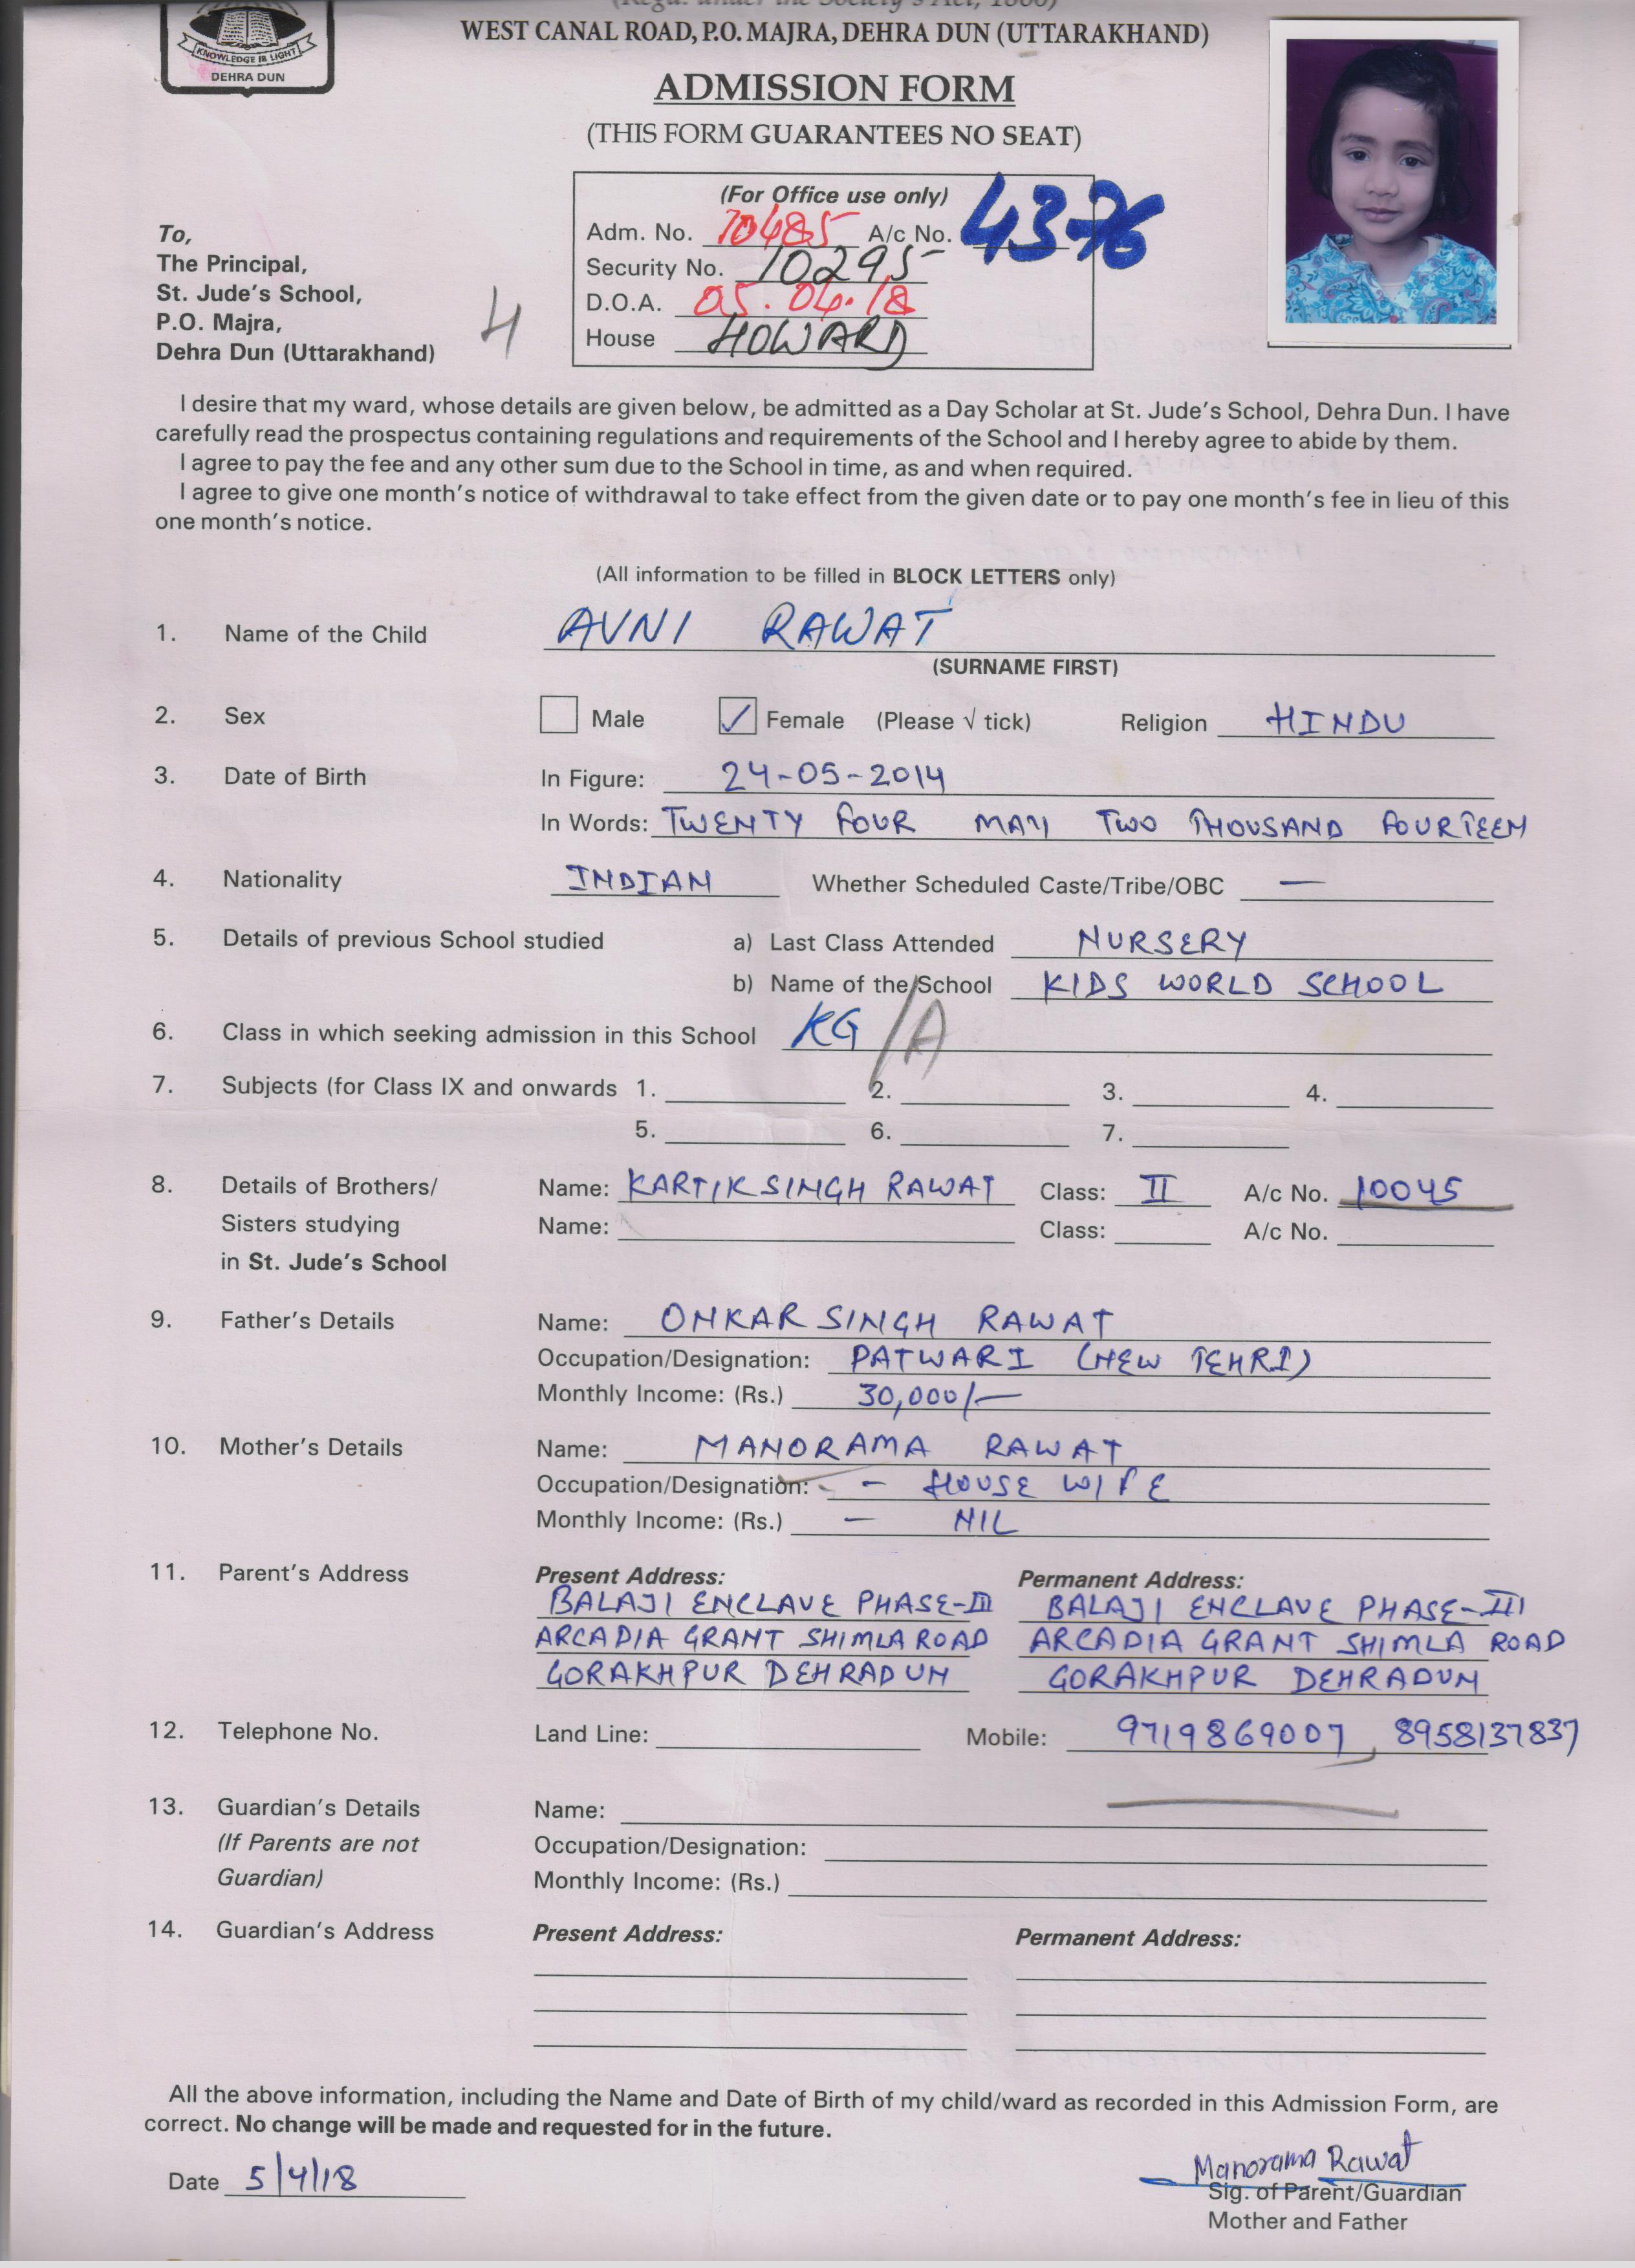 (Regd. under the Society's Act, 1860)
WEST CANAL ROAD, P.O. MAJRA, DEHRA DUN (UTTARAKHAND)
KNOWLEDGE IS LIGHT
DEHRA DUN
ADMISSION FORM
(THIS FORM GUARANTEES NO SEAT)
(For Office use only)
Adm. No. 10485 A/c No. 4376
Security No. 10295
D.O.A. 05.04.18
House HOWARD
To,
The Principal,
St. Jude's School,
P.O. Majra,
Dehra Dun (Uttarakhand)
4
I desire that my ward, whose details are given below, be admitted as a Day Scholar at St. Jude's School, Dehra Dun. I have
carefully read the prospectus containing regulations and requirements of the School and I hereby agree to abide by them.
I agree to pay the fee and any other sum due to the School in time, as and when required.
I agree to give one month's notice of withdrawal to take effect from the given date or to pay one month's fee in lieu of this
one month's notice.
(All information to be filled in BLOCK LETTERS only)
1. Name of the Child AVNI RAWAT
(SURNAME FIRST)
2. Sex Male ✓ Female (Please √ tick) Religion HINDU
3. Date of Birth In Figure: 24-05-2014
In Words: TWENTY FOUR MAY TWO THOUSAND FOURTEEN
4. Nationality INDIAN Whether Scheduled Caste/Tribe/OBC —
5. Details of previous School studied a) Last Class Attended NURSERY
b) Name of the School KIDS WORLD SCHOOL
6. Class in which seeking admission in this School KG/A
7. Subjects (for Class IX and onwards 1. 2. 3. 4.
5. 6. 7.
8. Details of Brothers/ Name: KARTIK SINGH RAWAT Class: II A/c No. 10045
Sisters studying Name: Class: A/c No.
in St. Jude's School
9. Father's Details Name: ONKAR SINGH RAWAT
Occupation/Designation: PATWARI (NEW TEHRI)
Monthly Income: (Rs.) 30,000/—
10. Mother's Details Name: MANORAMA RAWAT
Occupation/Designation: - HOUSE WIFE
Monthly Income: (Rs.) — NIL
11. Parent's Address Present Address: Permanent Address:
BALAJI ENCLAVE PHASE-III BALAJI ENCLAVE PHASE-III
ARCADIA GRANT SHIMLA ROAD ARCADIA GRANT SHIMLA ROAD
GORAKHPUR DEHRADUN GORAKHPUR DEHRADUN
12. Telephone No. Land Line: Mobile: 9719869007, 8958137837
13. Guardian's Details Name:
(If Parents are not Occupation/Designation:
Guardian) Monthly Income: (Rs.)
14. Guardian's Address Present Address: Permanent Address:
All the above information, including the Name and Date of Birth of my child/ward as recorded in this Admission Form, are
correct. No change will be made and requested for in the future.
Date 5/4/18
Manorama Rawat
Sig. of Parent/Guardian
Mother and Father